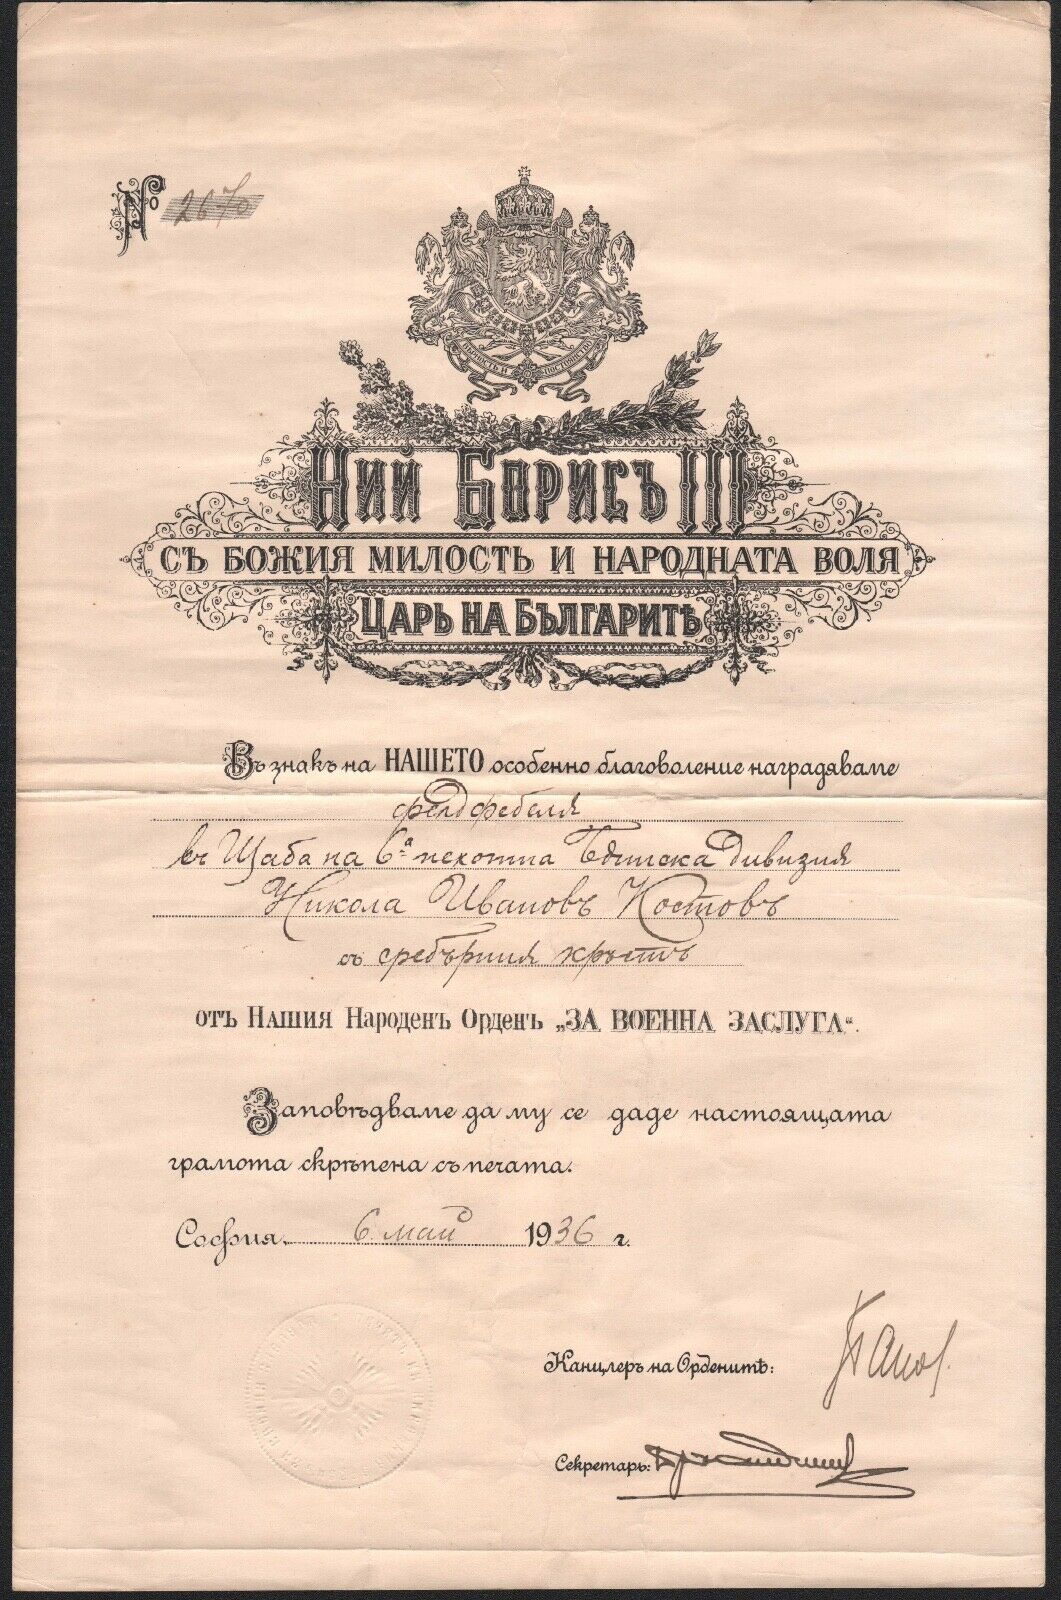 № 2670
ВѢРНОСТЬ И ПОСТОЯНСТВО
НИЙ БОРИСЪ III
СЪ БОЖИЯ МИЛОСТЬ И НАРОДНАТА ВОЛЯ
ЦАРЬ НА БЪЛГАРИТѢ
Въ знакъ на НАШЕТО особенно благоволение наградяваме
фелдфебеля
въ Щаба на 6а пехотна Бдинска дивизия
Никола Ивановъ Костовъ
съ сребърния кръстъ
отъ Нашия Народенъ Орденъ „ЗА ВОЕННА ЗАСЛУГА“.
Заповѣдваме да му се даде настоящата
грамота скрѣпена съ печата.
София, 6 май 1936 г.
Канцлеръ на Орденитѣ:
Секретарь: